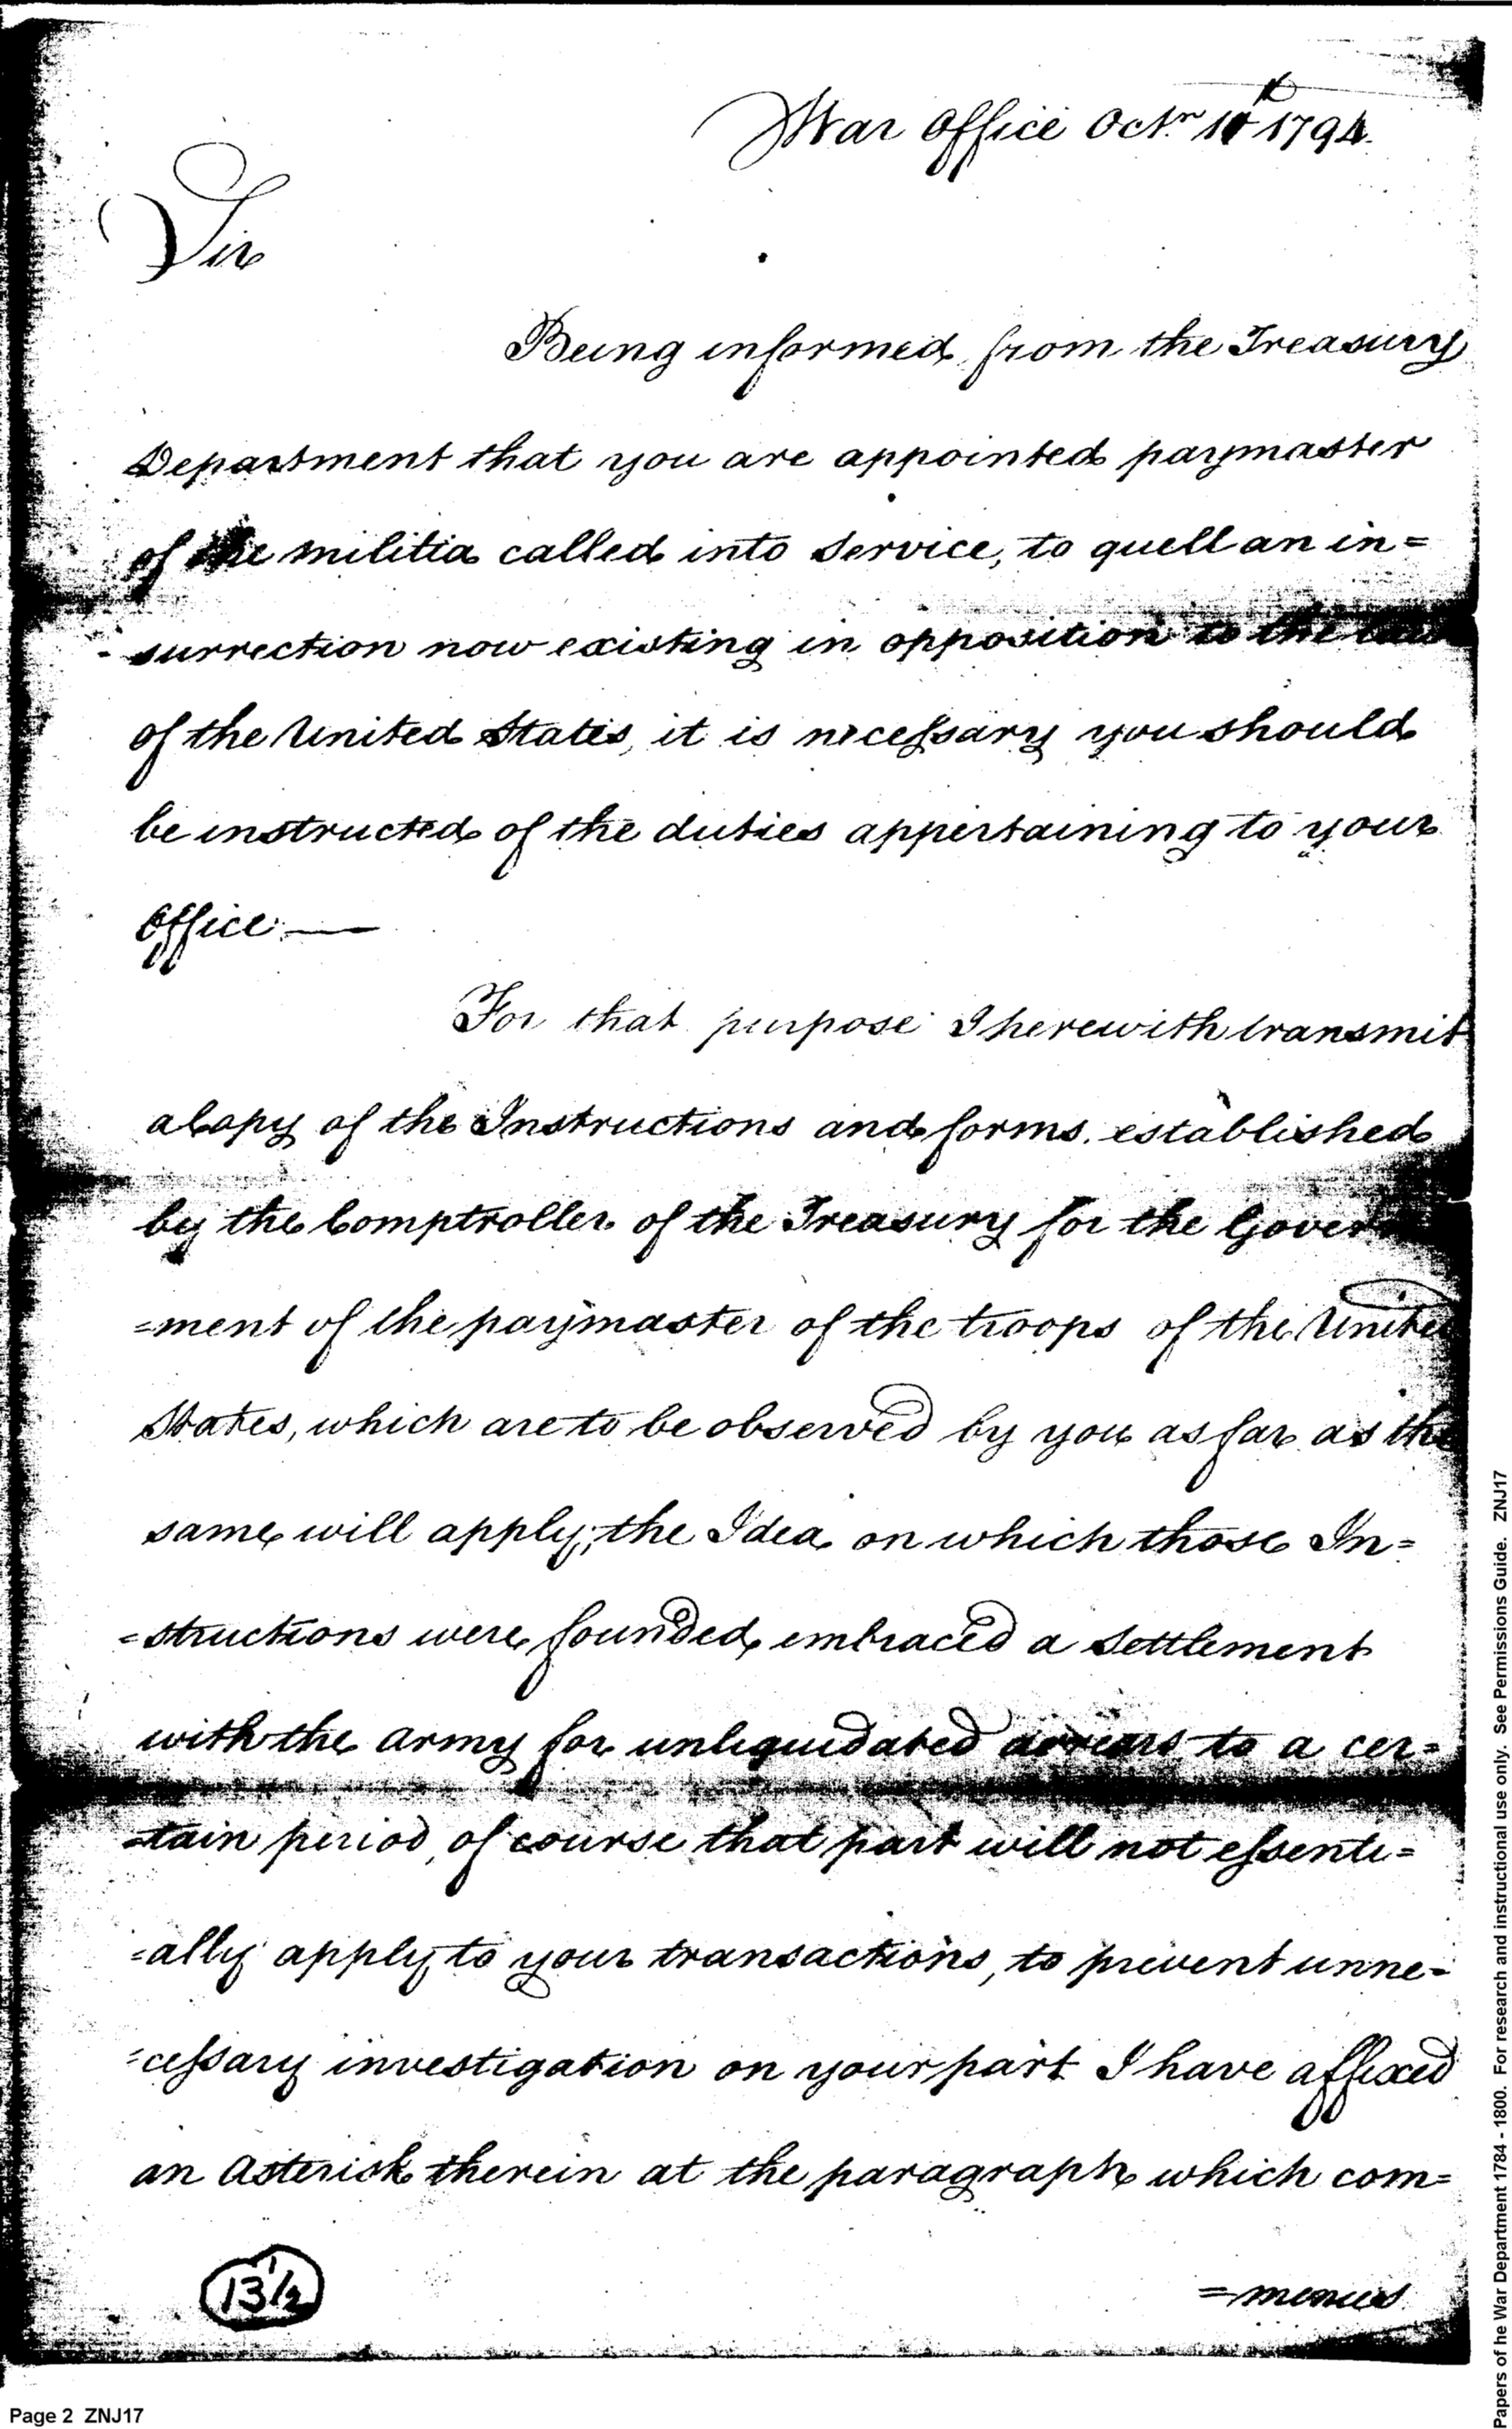 War Office Octr. 1794.
Sir
Being informed from the Treasury
Department that you are appointed paymaster
of the militia called into service, to quell an in=
surrection now existing in opposition to the laws
of the United States, it is necessary you should
be instructed of the duties appertaining to your
Office.—
For that purpose I herewith transmit
a Copy of the Instructions and forms established
by the Comptroller of the Treasury for the Govern
=ment of the paymaster of the troops of the United
States, which are to be observed by you as far as the
same will apply; the Idea on which those In=
=structions were founded, embraced a settlement
with the army for unliquidated arrears to a cer=
=tain period, of course that part will not essenti=
=ally apply to your transactions, to prevent unne=
=cessary investigation on your part I have affixed
an Asterisk therein at the paragraph which com=
=mences
13 1/2
Page 2 ZNJ17
Papers of he War Department 1784 - 1800. For research and instructional use only. See Permissions Guide. ZNJ17